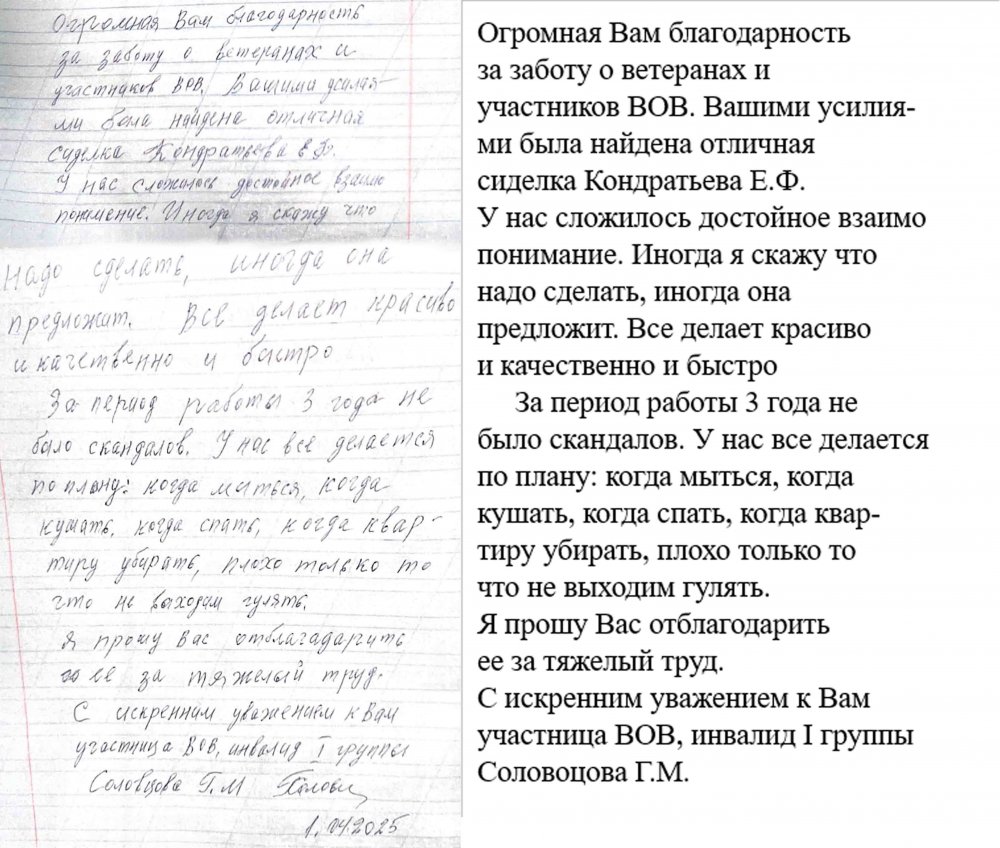 Огромная Вам благодарность
за заботу о ветеранах и
участников ВОВ. Вашими усилия-
ми была найдена отличная
сиделка Кондратьева Е.Ф.
У нас сложилось достойное взаимо
понимение. Иногда я скажу что
надо сделать, иногда она
предложит. Все делает красиво
и качетвенно и быстро
За период работы 3 года не
было скандалов. У нас все делается
по плану: когда мыться, когда
кушать, когда спать, когда квар-
тиру убирать, плохо только то
что не выходим гулять.
Я прошу Вас отблагадарить
ее за тяжелый труд.
С искренним уважением к Вам
участница ВОВ, инвалид I группы
Соловцова Г.М
1.04.2025
Огромная Вам благодарность
за заботу о ветеранах и
участников ВОВ. Вашими усилия-
ми была найдена отличная
сиделка Кондратьева Е.Ф.
У нас сложилось достойное взаимо
понимание. Иногда я скажу что
надо сделать, иногда она
предложит. Все делает красиво
и качественно и быстро
За период работы 3 года не
было скандалов. У нас все делается
по плану: когда мыться, когда
кушать, когда спать, когда квар-
тиру убирать, плохо только то
что не выходим гулять.
Я прошу Вас отблагодарить
ее за тяжелый труд.
С искренним уважением к Вам
участница ВОВ, инвалид I группы
Соловоцова Г.М.